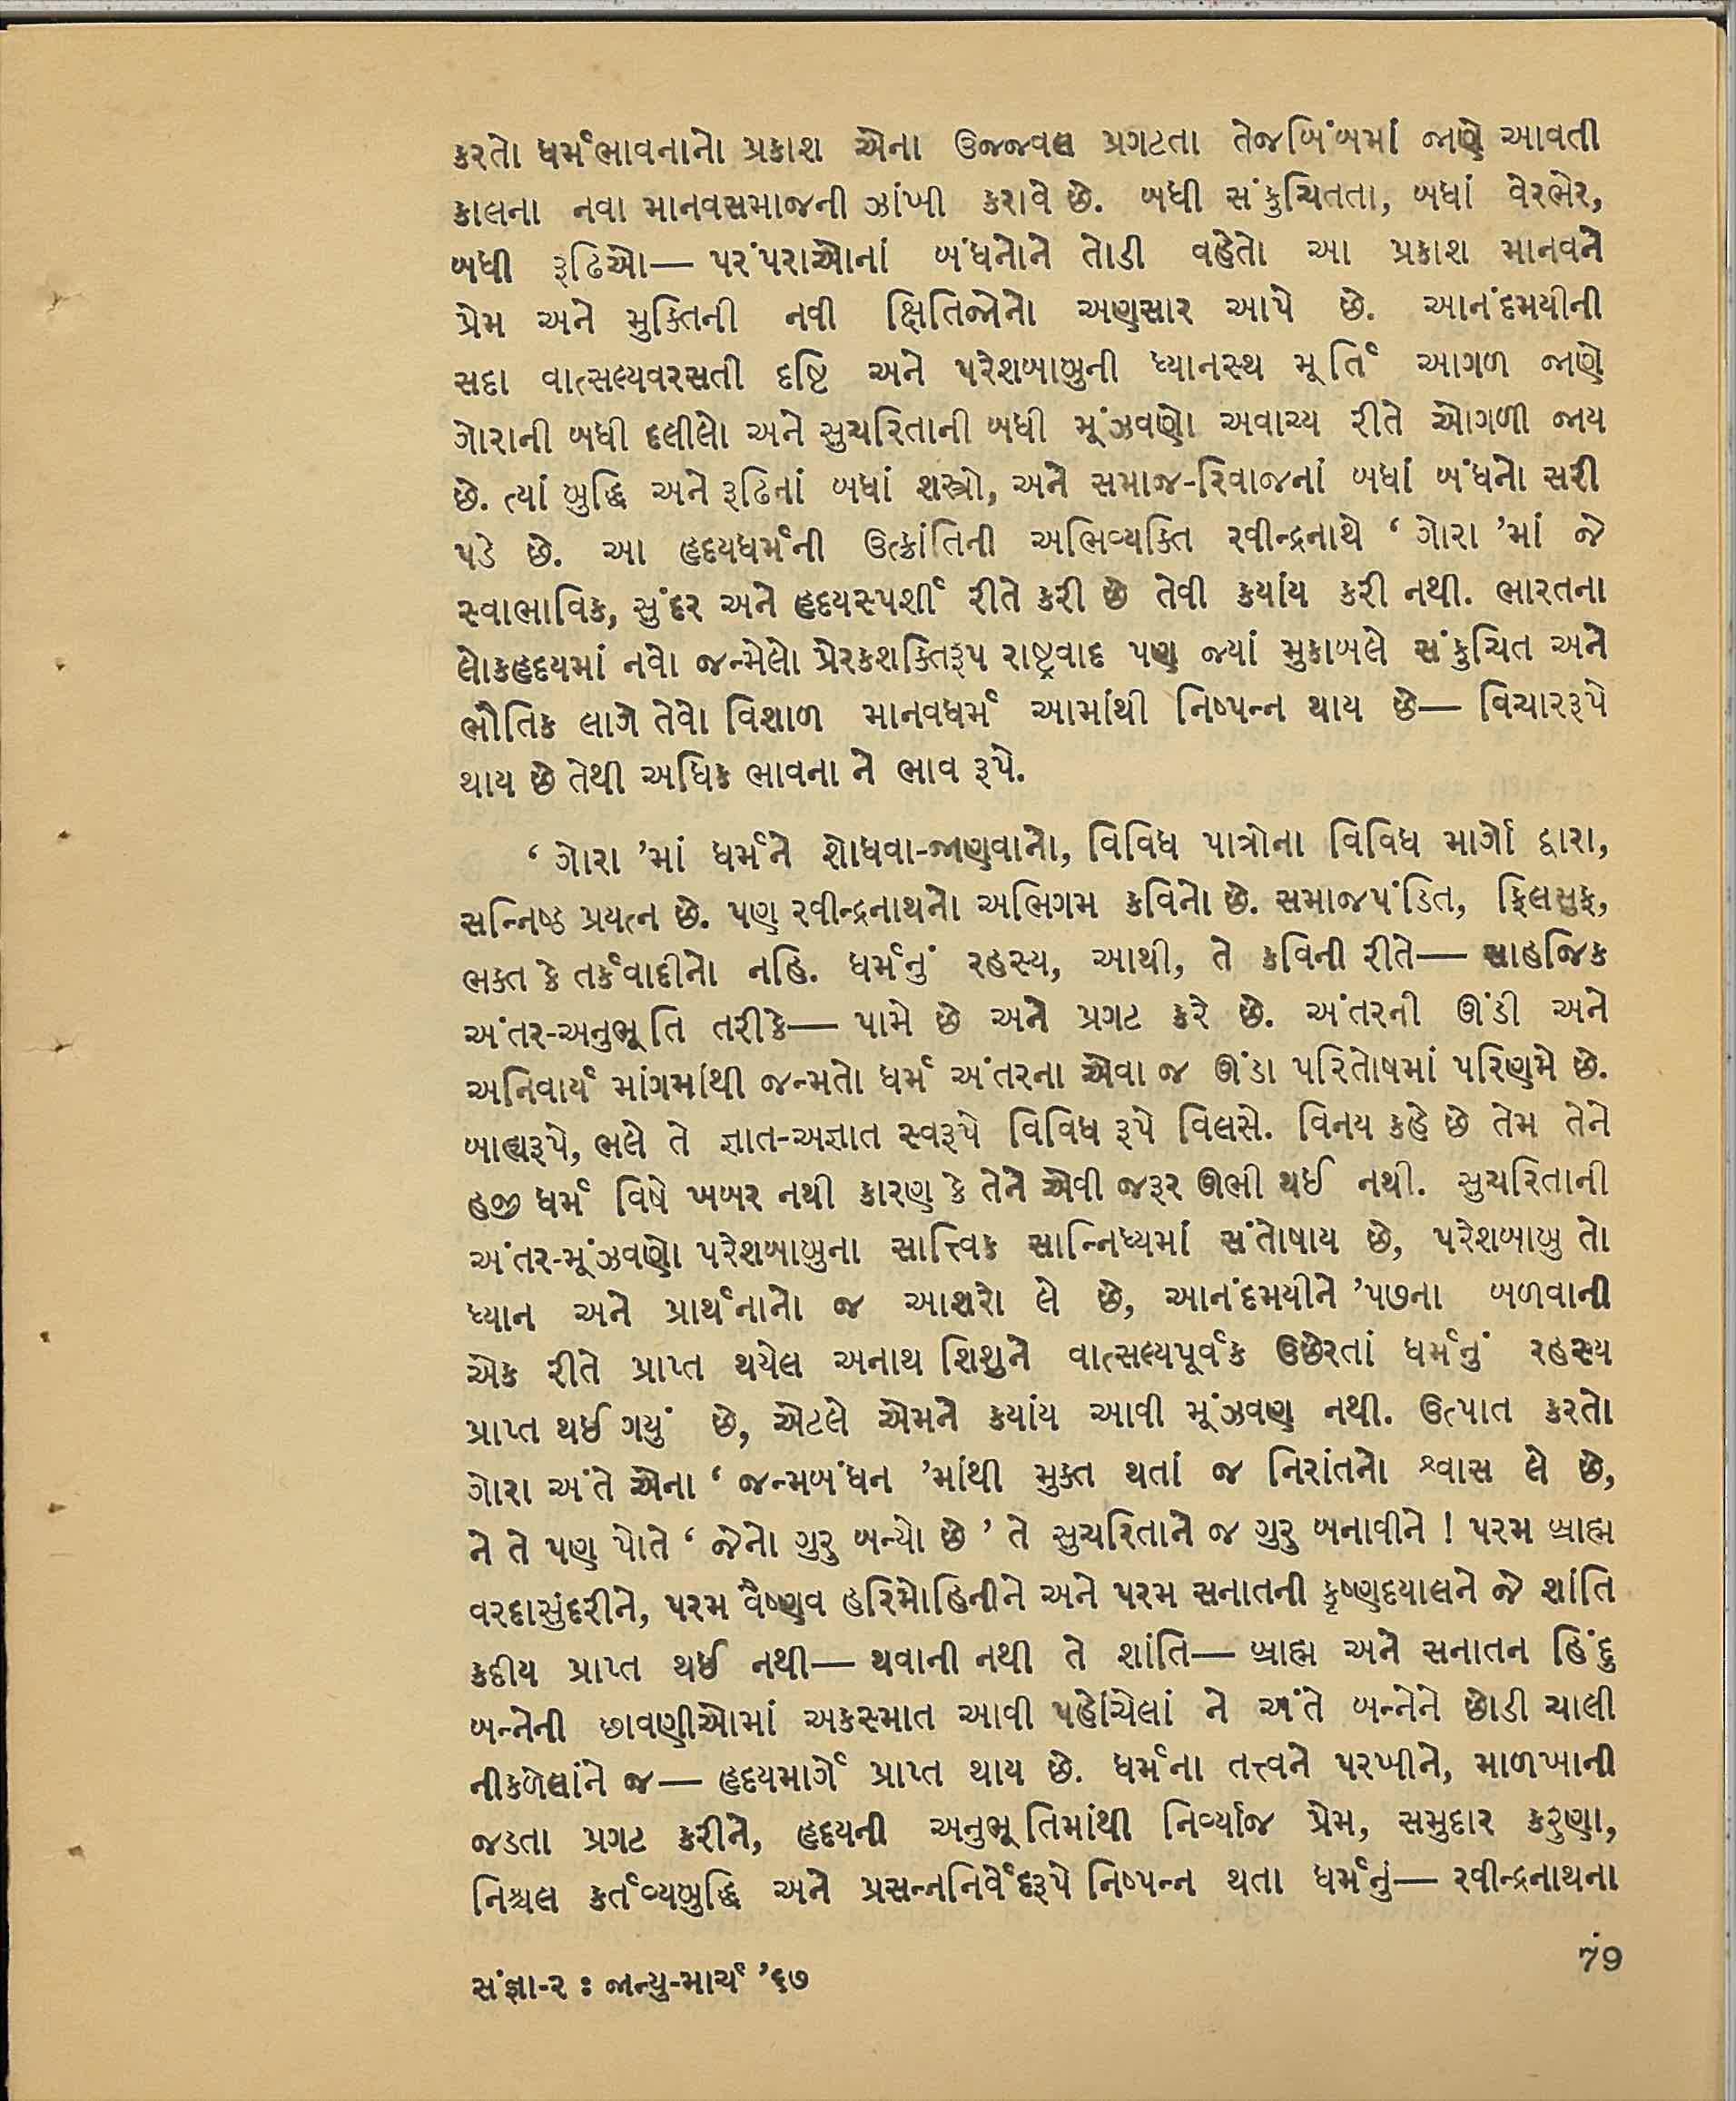 કરતો ધર્મભાવનાનો પ્રકાશ એના ઉજ્જવલ પ્રગટતા તેજબિંબમાં જાણે આવતી
કાલના નવા માનવસમાજની ઝાંખી કરાવે છે. બધી સંકુચિતતા, બધાં વેરભેર,
બધી રૂઢિઓ— પરંપરાઓનાં બંધનોને તોડી વહેતો આ પ્રકાશ માનવને
પ્રેમ અને મુક્તિની નવી ક્ષિતિજોનો અણસાર આપે છે. આનંદમયીની
સદા વાત્સલ્યવરસતી દૃષ્ટિ અને પરેશબાબુની ધ્યાનસ્થ મૂર્તિ આગળ જાણે
ગોરાની બધી દલીલો અને સુચરિતાની બધી મૂંઝવણો અવાચ્ય રીતે ઓગળી જાય
છે. ત્યાં બુદ્ધિ અને રૂઢિનાં બધાં શસ્ત્રો, અને સમાજ-રિવાજનાં બધાં બંધનો સરી
પડે છે. આ હૃદયધર્મની ઉત્ક્રાંતિની અભિવ્યક્તિ રવીન્દ્રનાથે ‘ ગોરા ’માં જે
સ્વાભાવિક, સુંદર અને હૃદયસ્પર્શી રીતે કરી છે તેવી કયાંય કરી નથી. ભારતના
લોકહૃદયમાં નવો જન્મેલો પ્રેરકશક્તિરૂપ રાષ્ટ્રવાદ પણ જ્યાં મુકાબલે સંકુચિત અને
ભૌતિક લાગે તેવો વિશાળ માનવધર્મ આમાંથી નિષ્પન્ન થાય છે— વિચારરૂપે
થાય છે તેથી અધિક ભાવના ને ભાવ રૂપે.
‘ ગોરા ’માં ધર્મને શોધવા-જાણવાનો, વિવિધ પાત્રોના વિવિધ માર્ગો દ્વારા,
સન્નિષ્ઠ પ્રયત્ન છે. પણ રવીન્દ્રનાથનો અભિગમ કવિનો છે. સમાજપંડિત, ફિલસુફ,
ભક્ત કે તર્કવાદીનો નહિ. ધર્મનું રહસ્ય, આથી, તે કવિની રીતે— સાહજિક
અંતર-અનુભૂતિ તરીકે— પામે છે અને પ્રગટ કરે છે. અંતરની ઊંડી અને
અનિવાર્ય માંગમાંથી જન્મતો ધર્મ અંતરના એવા જ ઊંડા પરિતોષમાં પરિણમે છે.
બાહ્યરૂપે, ભલે તે જ્ઞાત-અજ્ઞાત સ્વરૂપે વિવિધ રૂપે વિલસે. વિનય કહે છે તેમ તેને
હજી ધર્મ વિષે ખબર નથી કારણ કે તેને એવી જરૂર ઊભી થઈ નથી. સુચરિતાની
અંતર-મૂંઝવણો પરેશબાબુના સાત્ત્વિક સાન્નિધ્યમાં સંતોષાય છે, પરેશબાબુ તો
ધ્યાન અને પ્રાર્થનાનો જ આશરો લે છે, આનંદમયીને ’૫૭ના બળવાની
એક રીતે પ્રાપ્ત થયેલ અનાથ શિશુને વાત્સલ્યપૂર્વક ઉછેરતાં ધર્મનું રહસ્ય
પ્રાપ્ત થઈ ગયું છે, એટલે એમને કયાંય આવી મૂંઝવણ નથી. ઉત્પાત કરતો
ગોરા અંતે એના ‘ જન્મબંધન ’માંથી મુક્ત થતાં જ નિરાંતનો શ્વાસ લે છે,
ને તે પણ પોતે ‘ જેનો ગુરુ બન્યો છે ’ તે સુચરિતાને જ ગુરુ બનાવીને ! પરમ બ્રાહ્મ
વરદાસુંદરીને, પરમ વૈષ્ણવ હરિમોહિનીને અને પરમ સનાતની કૃષ્ણદયાલને જે શાંતિ
કદીય પ્રાપ્ત થઈ નથી— થવાની નથી તે શાંતિ— બ્રાહ્મ અને સનાતન હિંદુ
બન્નેની છાવણીઓમાં અકસ્માત આવી પહોંચેલાં ને અંતે બન્નેને છોડી ચાલી
નીકળેલાંને જ— હૃદયમાર્ગે પ્રાપ્ત થાય છે. ધર્મના તત્ત્વને પરખીને, માળખાની
જડતા પ્રગટ કરીને, હૃદયની અનુભૂતિમાંથી નિર્વ્યાજ પ્રેમ, સમુદાર કરુણા,
નિશ્ચલ કર્તવ્યબુદ્ધિ અને પ્રસન્નનિર્વેદરૂપે નિષ્પન્ન થતા ધર્મનું— રવીન્દ્રનાથના
79
સંજ્ઞા-૨ : જાન્યુ-માર્ચ ’૬૭